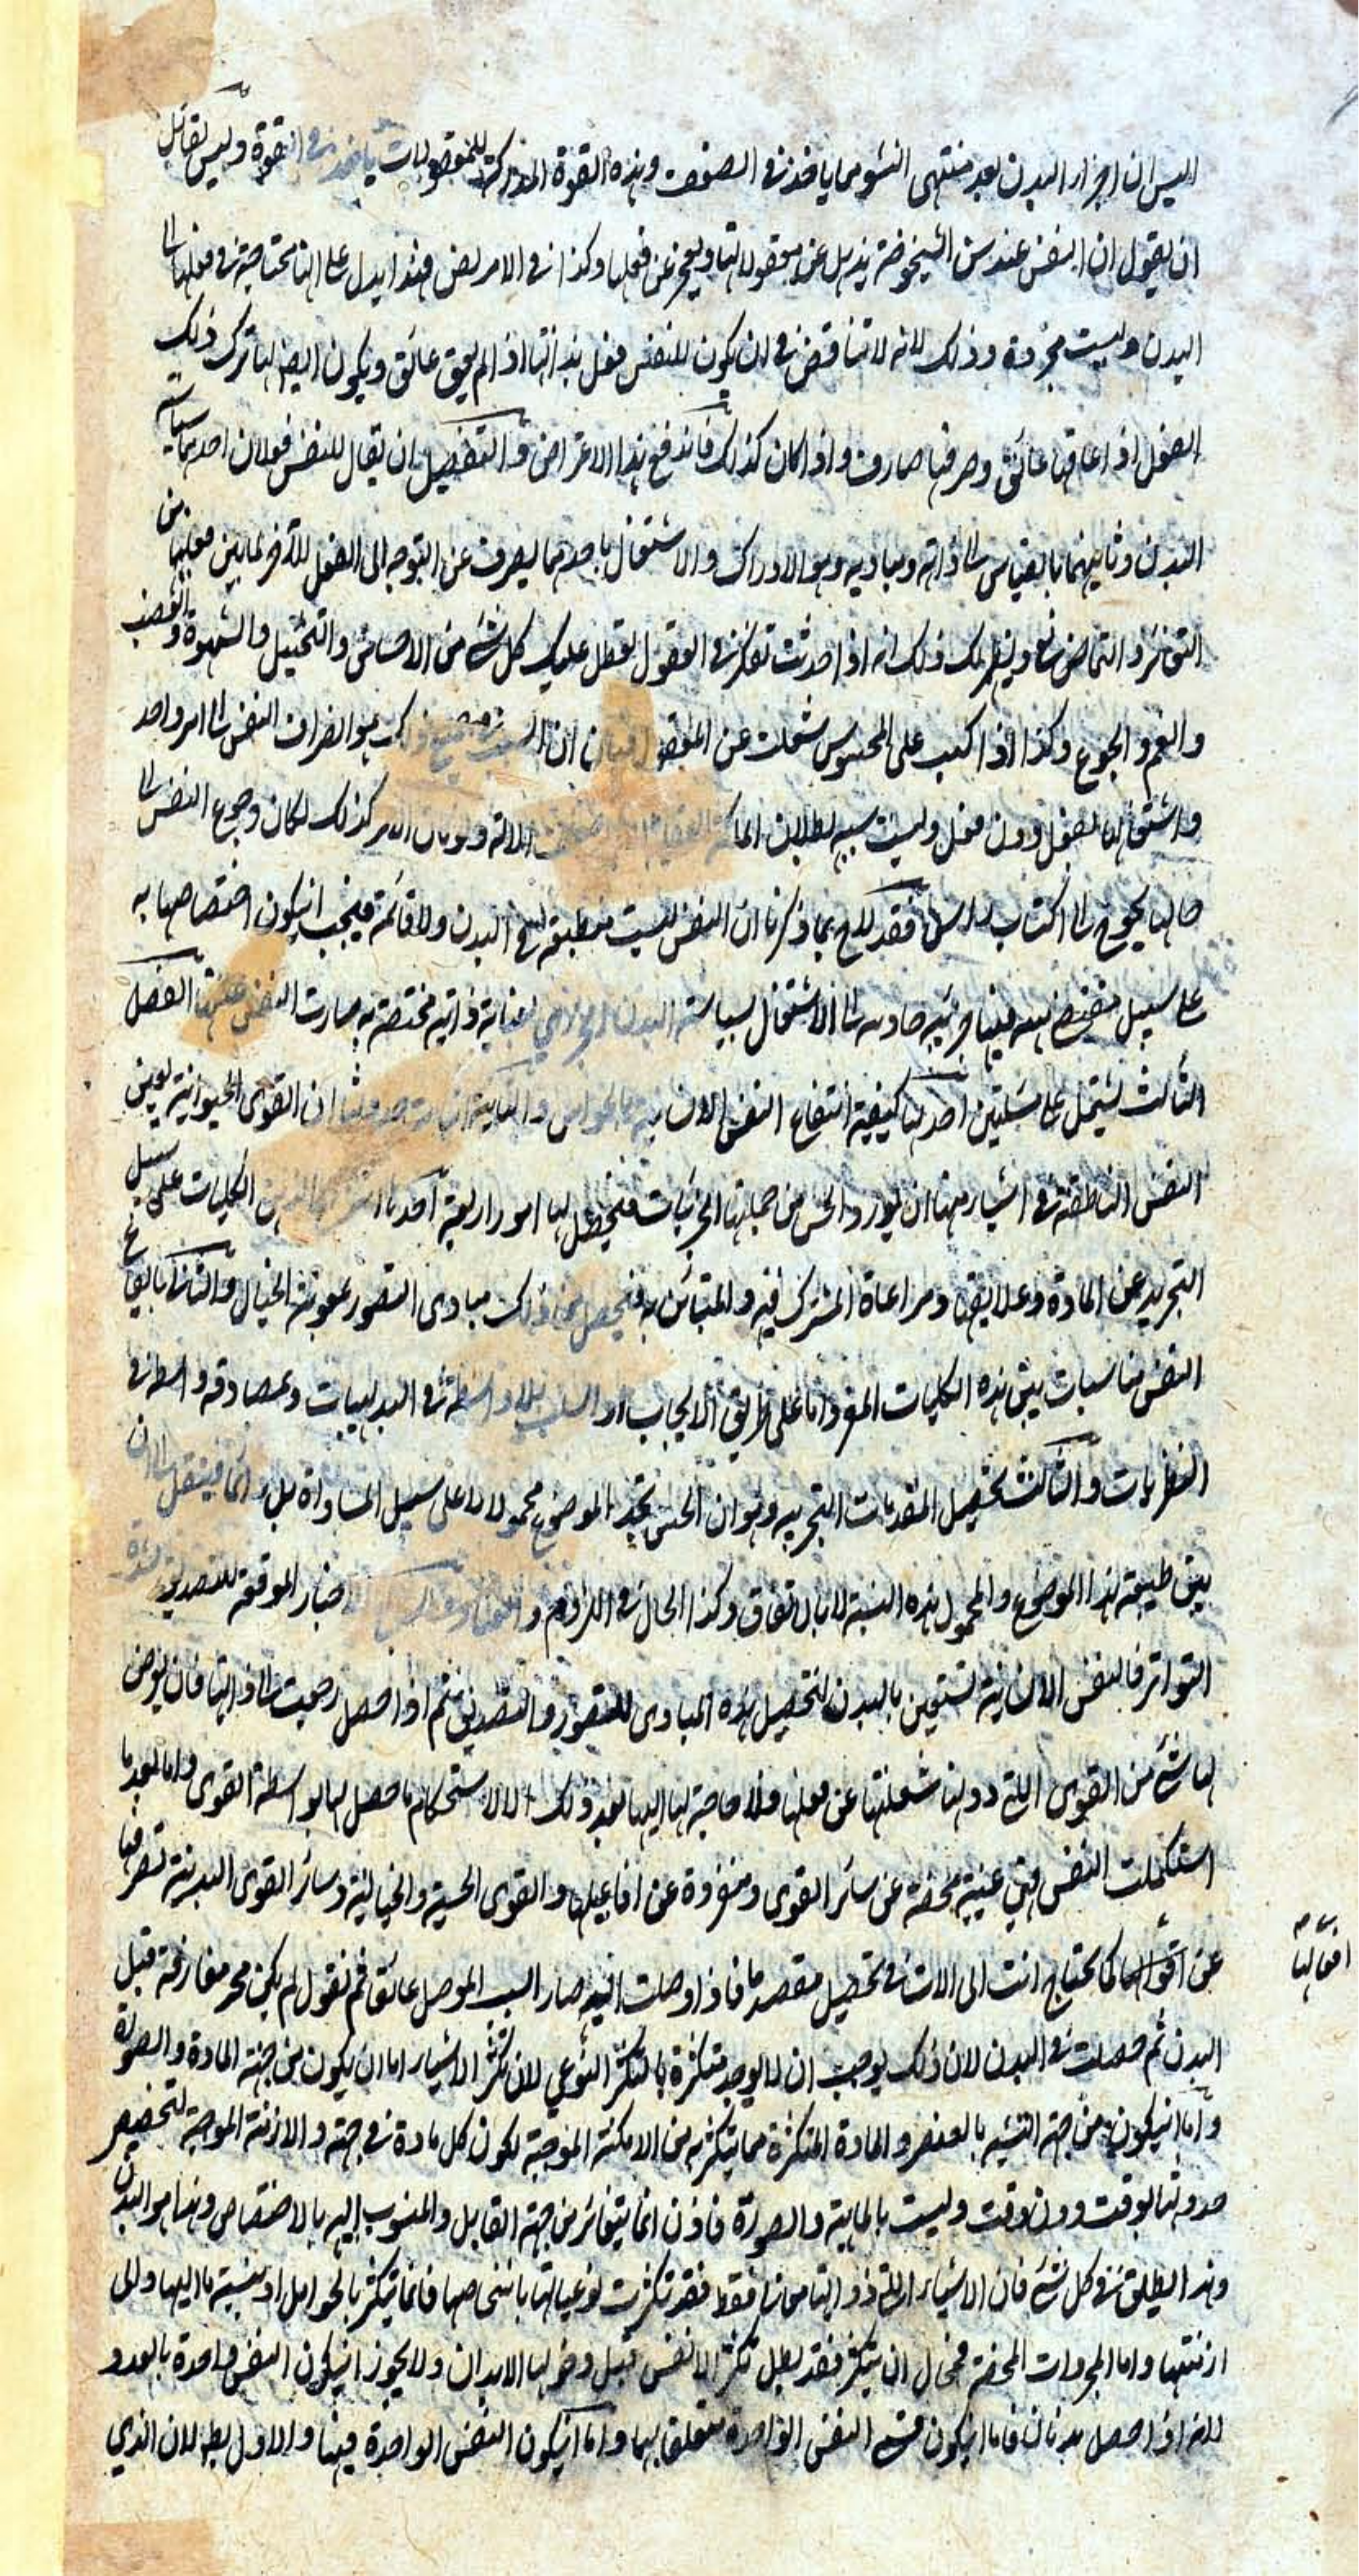 اليس ان اجزاء البدن بعد منتهى النشو مما ياخذ في الضعف وهذه القوة المدركة للمعقولات ياخذ في القوة وليس لقائل
ان يقول ان النفس عند سن الشيخوخة يذهل عن معقولاتها ويعجز عن فعلها وكذا في الامراض فهذا يدل على انها محتاجة في فعلها الى
البدن وليست مجردة وذلك لانه لا تناقض في ان يكون للنفس فعل بذاتها اذا لم يعق عائق ويكون ايضا لها ترك ذلك
الفعل اذا عاقها عائق وصرفها صارف واذا كان كذلك فاندفع هذا الاعتراض والتفصيل ان يقال للنفس فعلان احدهما سياسة
البدن وثانيهما بالقياس الى ذاته ومباديه وهو الادراك والاشتغال باحدهما يصرف عن التوجه الى الفعل للآخر لما بين فعليها من
التعاند والتمانع ويظهر لك ذلك انه اذا اخذت تفكر في العقول تعطل عليك كل شئ من الاحساس والتخييل والشهوة والغضب
والغم والجوع وكذا اذا اكببت على المحسوس شغلت عن المعقول فبان ان السبب في جميع ذلك هو انصراف النفس الى امر واحد
واشتغالها بفعل دون فعل وليست سببه بطلان الملكة العقلية الآلة ولو كان الامر كذلك لكان رجوع النفس الى
حالها يحوج الى اكتساب فقد لاح بما ذكرنا ان النفس ليست منطبعة في البدن ولا قائمة فيجب ان يكون اختصاصها به
على سبيل مقتضى هيئة فيها جزئية جاذبة الى الاشتغال بسياسة البدن الجزئي لعناية ذاتية مختصة به صارت النفس عليها الفصل
الثالث يشتمل على مسئلتين احدهما كيفية انتفاع النفس الانسانية بالحواس والثانية اثبات حدوثها ان القوى الحيوانية يعين
النفس الناطقة في اشياء منها ان يورد الحس من جملتها الجزئيات فيحصل لها امور اربعة احدها انتزاع الذهن الكليات على سبيل
التجريد عن المادة وعلايقها ومراعاة المشترك فيه والمتباين به فيحصل من ذلك مبادى التصور بمعونة الخيال والثاني ايقاع
النفس مناسبات بين هذه الكليات المفردة اما على طريق الايجاب او السلب بلا واسطة في البديهيات وبمصادفة واسطة في
النظريات والثالث تحصيل المقدمات التجربية وهو ان الحس يجد الموضوع محمولا على سبيل المساواة بل فينتقل الى ان
بين طبيعة هذا الموضوع والمحمول هذه النسبة لا بالاتفاق وكذا الحال في اللزوم والعناد والرابع الاخبار الموقعة للتصديق لشدة
التواتر فالنفس الانسانية تستعين بالبدن لتحصيل هذه المبادى للتصور والتصديق ثم اذا حصل رجعت الى ذاتها فان يعرض
لها شئ من القوى التي دونها شغلتها عن فعلها فلا حاجة لها اليها بعد ذلك الا لاستحكام ما حصل لها بواسطة القوى واما بعد ما
استكملت النفس فهي غنية محضة عن سائر القوى ومنفردة عن افاعيلها والقوى الحسية والخيالية وسائر القوى البدنية تصرفها
عن اقوالها كما تحتاج انت الى الات في تحصيل مقصد ما فاذا وصلت اليه صار السبب الموصل عائق ثم نقول لم يكن مجرد مفارقة قبل
افعالها
البدن ثم حصلت في البدن لان ذلك يوجب ان لا يوجد متكثرة بالتكثر النوعي لان تكثر الاشياء اما ان يكون من جهة المادة والصورة
واما ان يكون من جهة النسبة بالعنصر والمادة المتكثرة مما يتكثر به من الامكنة الموجبة لكون كل مادة في جهة والازمنة الموجبة لتخصيص
حدوثها بوقت دون وقت وليست بالماهية والصورة فاذن انما يتغاير من جهة القابل والمنسوب اليه بالاختصاص وهنا هو البدن
وهذا يطلق في كل شئ فان الاشياء التي ذواتها معان فقط فقد تكثرت نوعياتها باشخاصها فانما يتكثر بالحوامل او بنسبة ما اليها والى
ازمنتها واما المجردات المحضة فمحال ان يتكثر فقد بطل تكثر الانفس قبل دخولها الابدان ولا يجوز ان يكون النفس واحدة بالعدد
لانه اذا حصل بدنان فاما ان يكون قسمي النفس الواحدة متعلق بهما واما ان يكون النفس الواحدة فيهما والاول بطلان الذي